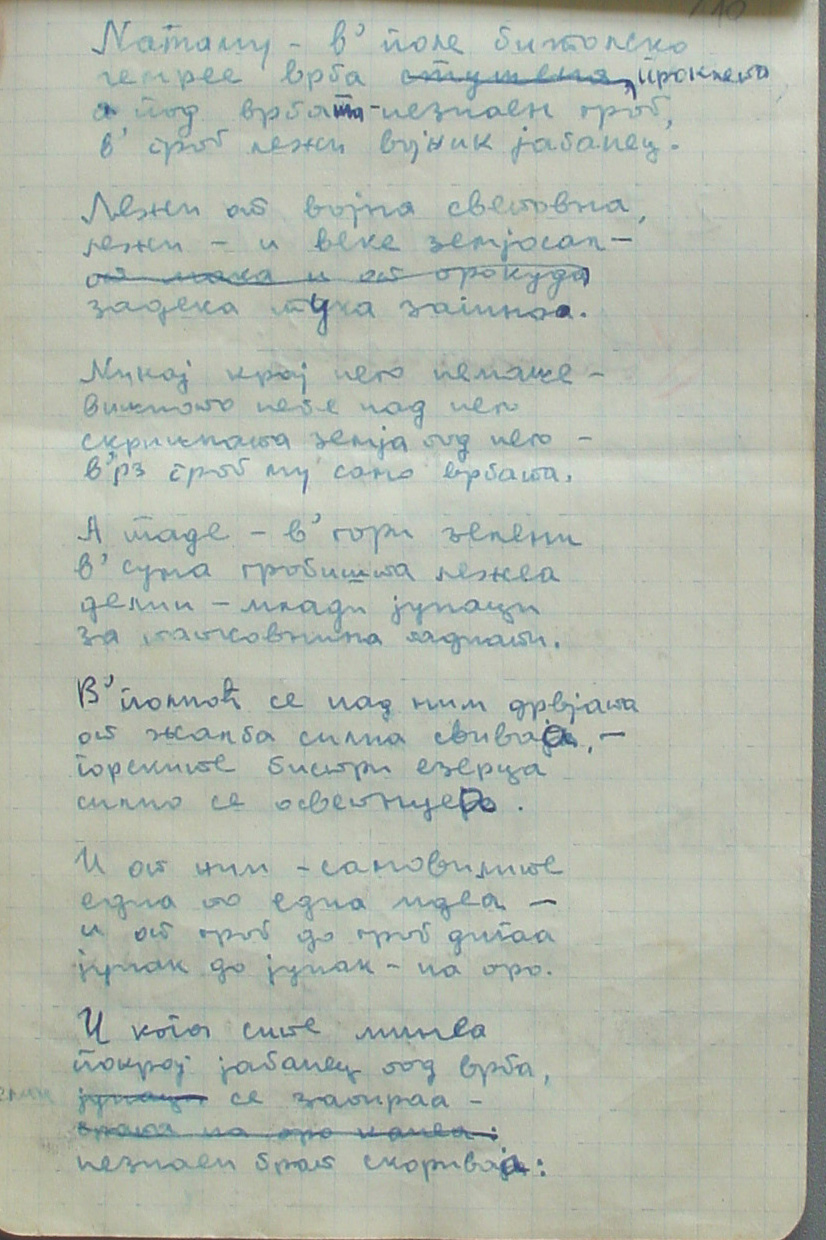 Натаму – в' поле битолско
чемрее врба проклета
а под врбата – незнаен гроб,
в' гроб лежи војник јабанец.
Лежи от војна световна,
лежи – и веке земјосан –
от мака и от прокуда
задека тука загина.
Никој крој него немаше –
вишното небе над него
скришната земја под него –
в'рз гроб му само врбата.
А таде – в' гори зелени
в' сума гробишта лежеа
делии – млади јунаци
за татковнина паднати.
В' полноќ се над ним дрвјата
от жалба силна свиваја, –
горските бистри езерца
силно се осветнуеа.
И от ним – самовилите
една по една идеа –
и от гроб до гроб дигаа
јунак до јунак – на оро.
И кога сите минеа
покрој јабанец под врба,
јунаци се запираа –
браќа на оро канеа:
незнаен брат скориваја: